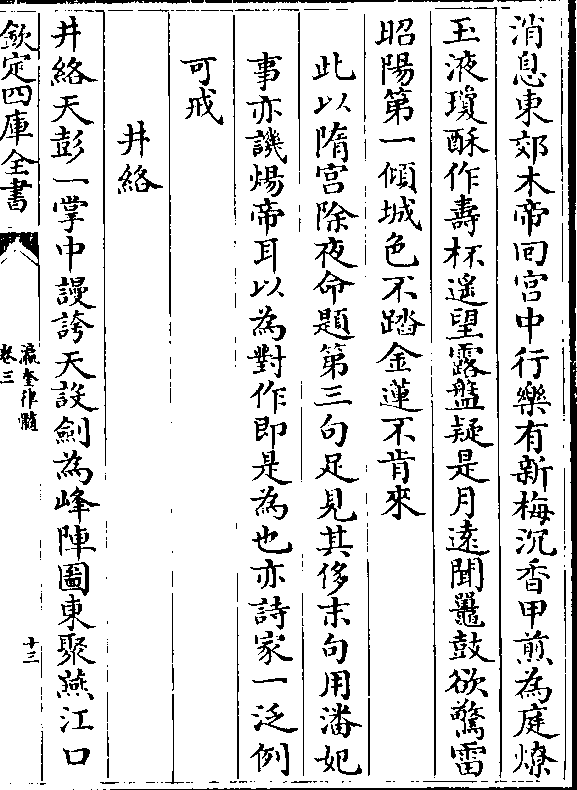 消息東郊木帝回宫中行樂有新梅沉香甲煎為庭燎
玉液瓊酥作壽杯遥望露盤疑是月遠聞鼉鼓欲驚雷
昭陽第一傾城色不踏金蓮不肯來
此以隋宫除夜命題第三句足見其侈末句用潘妃
事亦譏煬帝耳以為對作即是為也亦詩家一泛例
可戒
井絡
井絡天彭一掌中謾誇天設劍為峰陣圖東聚燕江口
欽定四庫全書
瀛奎律髓
卷三
十三